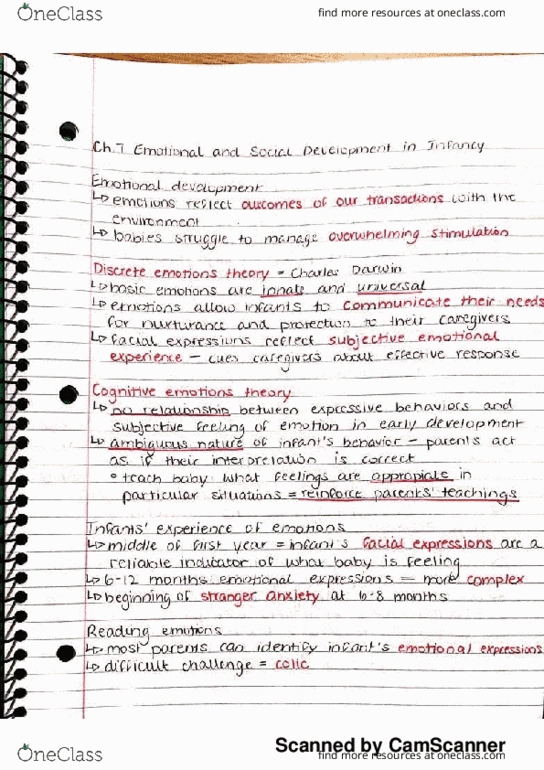 OneClass
find more resources at oneclass.com
Ch.7 Emotional and Social Development in Infancy
Emotional development
↳ emotions reflect outcomes of our transactions with the
environment
↳ babies struggle to manage overwhelming stimulation
Discrete emotions theory = Charles Darwin
↳ basic emotions are innate and universal
↳ emotions allow infants to communicate their needs
for nurturance and protection to their caregivers
↳ facial expressions reflect subjective emotional
experience – cues caregivers about effective response
Cognitive emotions theory
↳ no relationship between expressive behaviors and
subjective feeling of emotion in early development
↳ ambiguous nature of infant's behavior – parents act
as if their interpretation is correct
° teach baby what feelings are appropiate in
particular situations = reinforce parents' teachings
Infants' experience of emotions
↳ middle of first year = infant's facial expressions are a
reliable indicator of what baby is feeling
↳ 6-12 months emotional expressions = more complex
↳ beginning of stranger anxiety at 6-8 months
Reading emotions
↳ most parents can identify infant's emotional expressions
↳ difficult challenge = colic
Scanned by CamScanner
OneClass
find more resources at oneclass.com